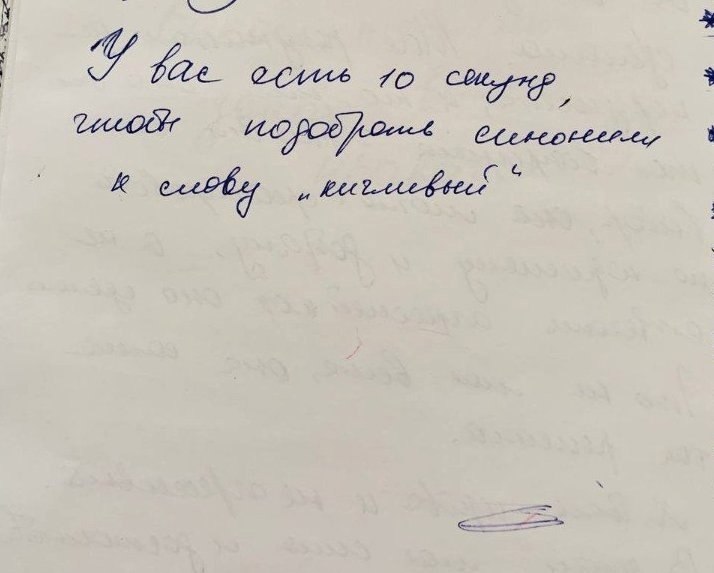 У вас есть 10 секунд,
чтобы подобрать синонимы
к слову „кичливый“